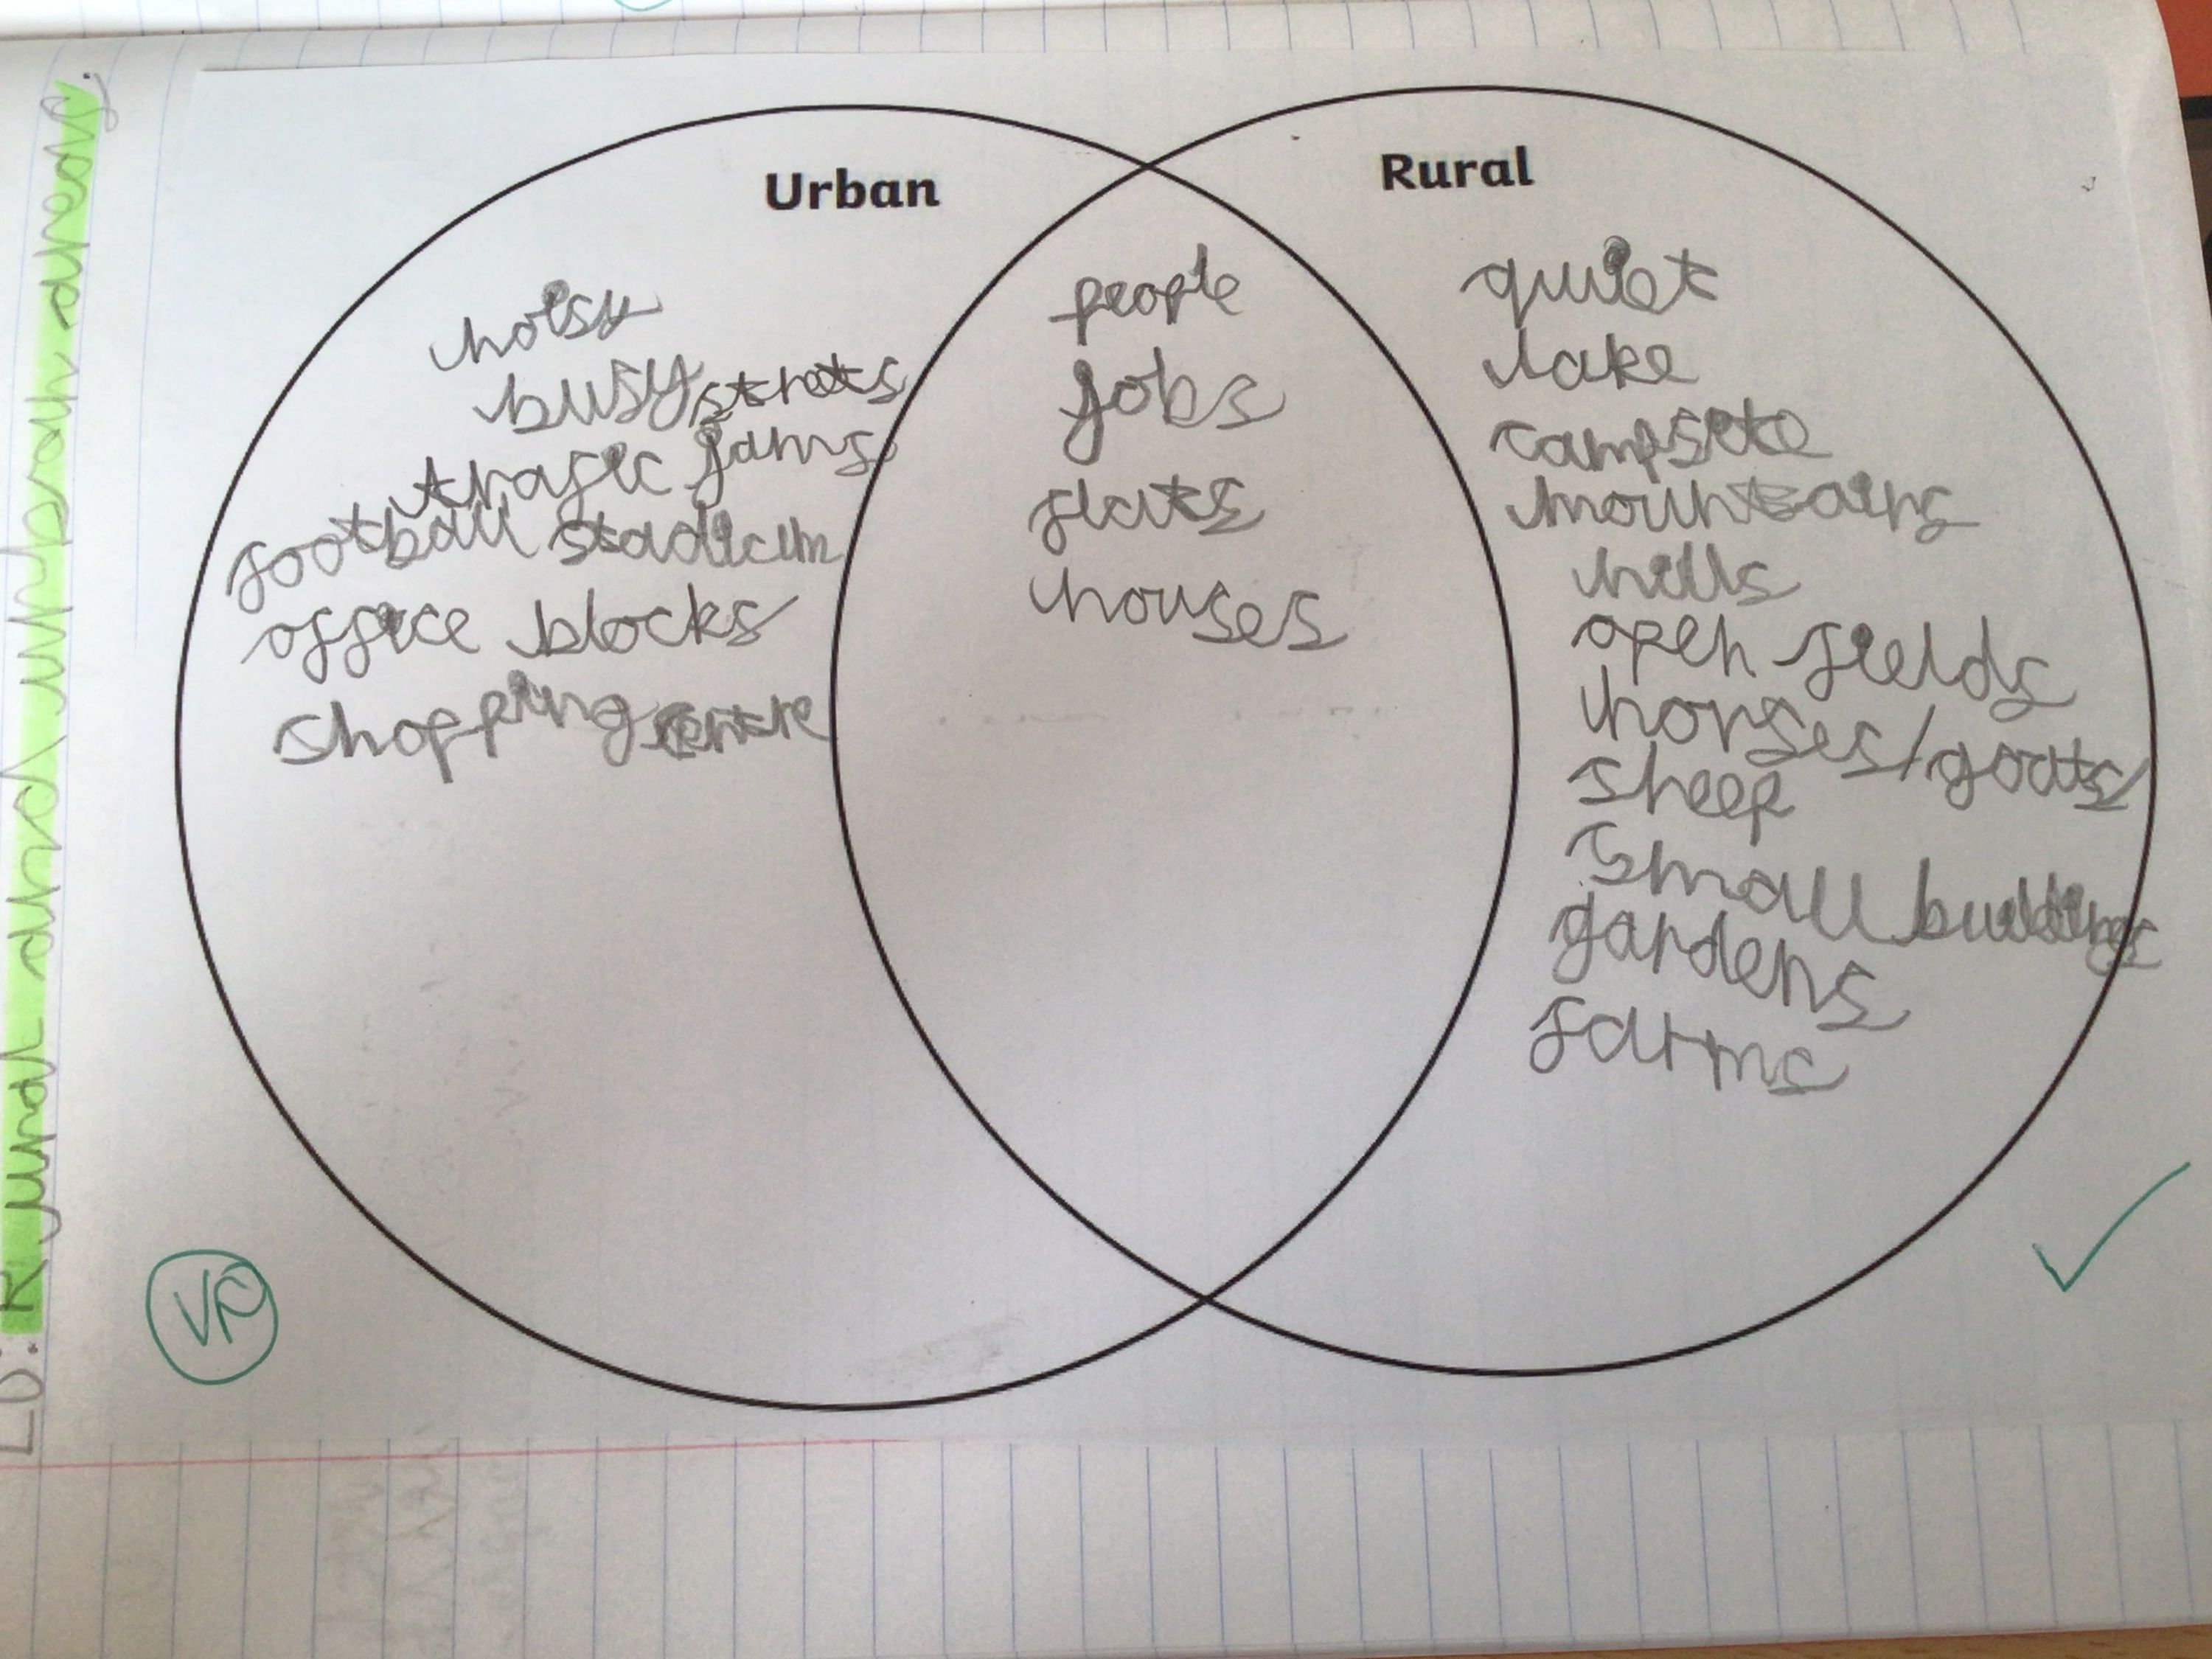 LO: Rural and urban areas.
Urban
noisy
busy strets
trafic jams
football stadium
office blocks
shopping centre
people
jobs
flats
houses
Rural
quiet
lake
campsite
mountains
hills
open fields
horses/goats/
sheep
small buildings
gardens
farms
VF